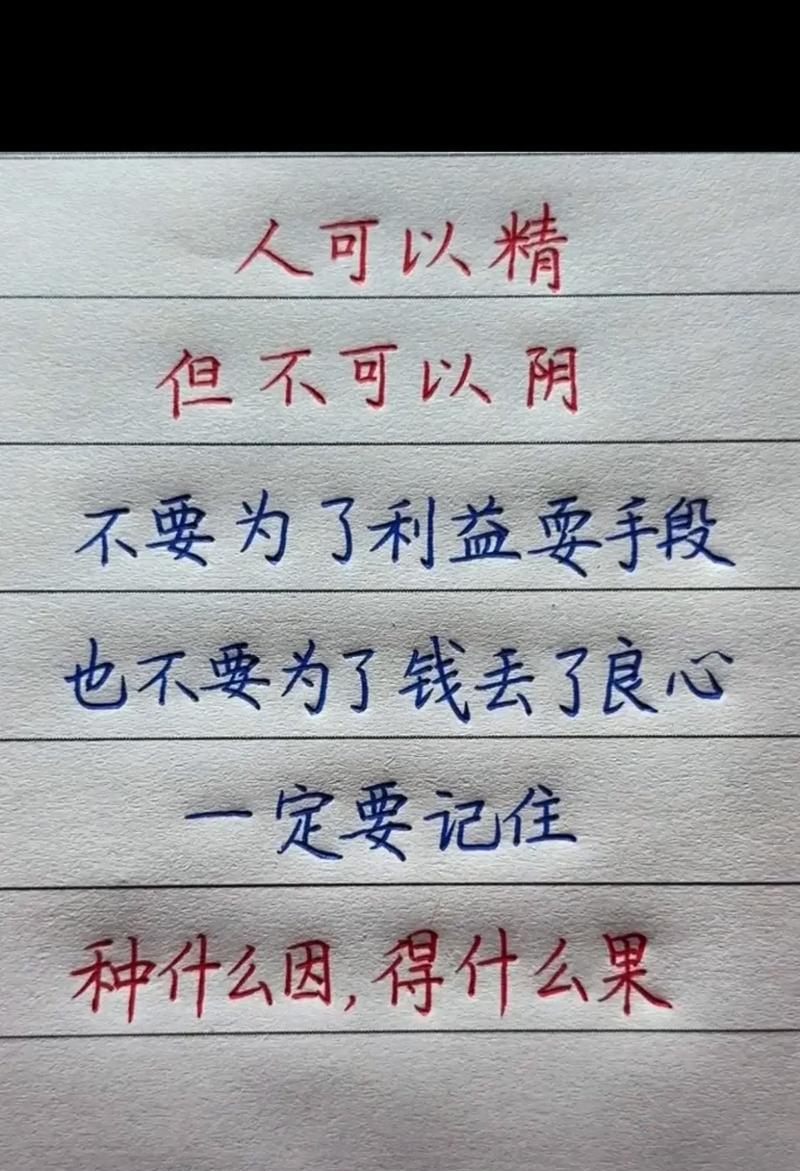 人可以精
但不可以阴
不要为了利益耍手段
也不要为了钱丢了良心
一定要记住
种什么因,得什么果